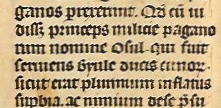 ganos preterunt. Qd cu iu
diss princeps milicie pagano
rum nomine Osul. qui fuit
seruens Gyule ducis
sicut erat plurimum inflatus
supbia. ac nimium